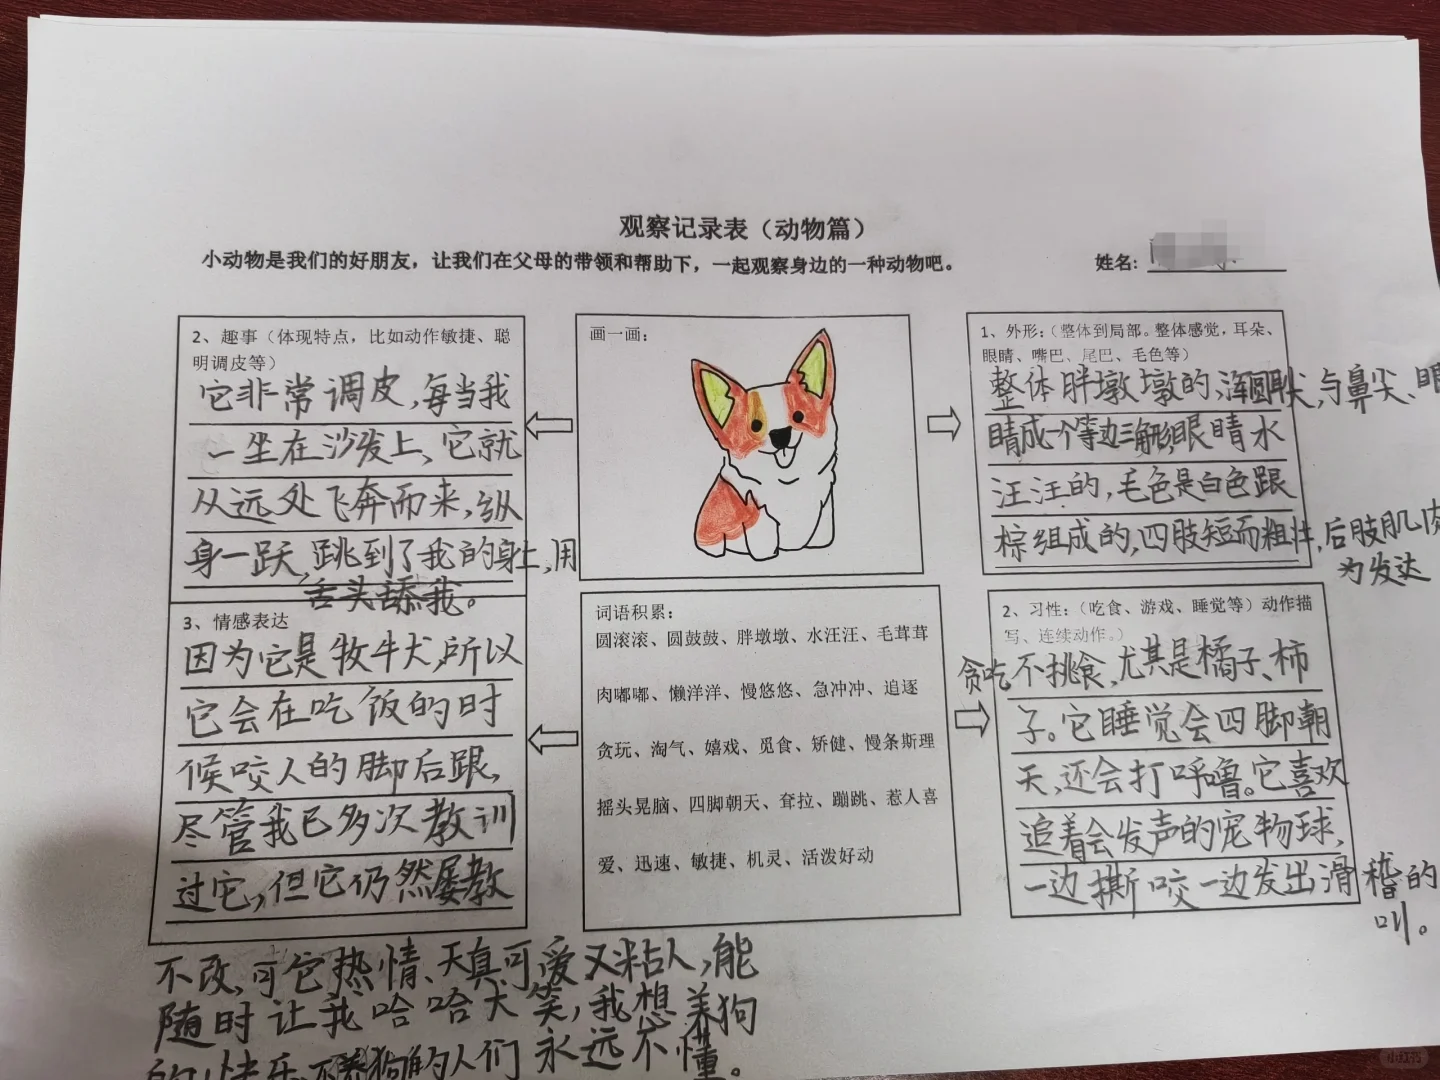 观察记录表（动物篇）
小动物是我们的好朋友，让我们在父母的带领和帮助下，一起观察身边的一种动物吧。
姓名：
2、趣事（体现特点，比如动作敏捷、聪
明调皮等）
它非常调皮，每当我
一坐在沙发上，它就
从远处飞奔而来，纵
身一跃，跳到了我的身上，用
舌头舔我。
画一画：
1、外形：（整体到局部。整体感觉，耳朵、
眼睛、嘴巴、尾巴、毛色等）
整体胖墩墩的，浑圆，与鼻尖、眼
睛成一个等边三角形，眼睛水
汪汪的，毛色是白色跟
棕组成的，四肢短而粗壮，后肢肌肉
为发达
3、情感表达
因为它是牧牛犬，所以
它会在吃饭的时
候咬人的脚后跟，
尽管我已多次教训
过它，但它仍然屡教
不改，可它热情、天真可爱又粘人，能
随时让我哈哈大笑，我想养狗
的快乐，不养狗的人们永远不懂。
词语积累：
圆滚滚、圆鼓鼓、胖墩墩、水汪汪、毛茸茸
肉嘟嘟、懒洋洋、慢悠悠、急冲冲、追逐
贪玩、淘气、嬉戏、觅食、矫健、慢条斯理
摇头晃脑、四脚朝天、耷拉、蹦跳、惹人喜
爱、迅速、敏捷、机灵、活泼好动
2、习性：（吃食、游戏、睡觉等）动作描
写、连续动作。）
贪吃不挑食，尤其是橘子、柿
子。它睡觉会四脚朝
天，还会打呼噜。它喜欢
追着会发声的宠物球，
一边撕咬一边发出滑稽的
叫。
小红书